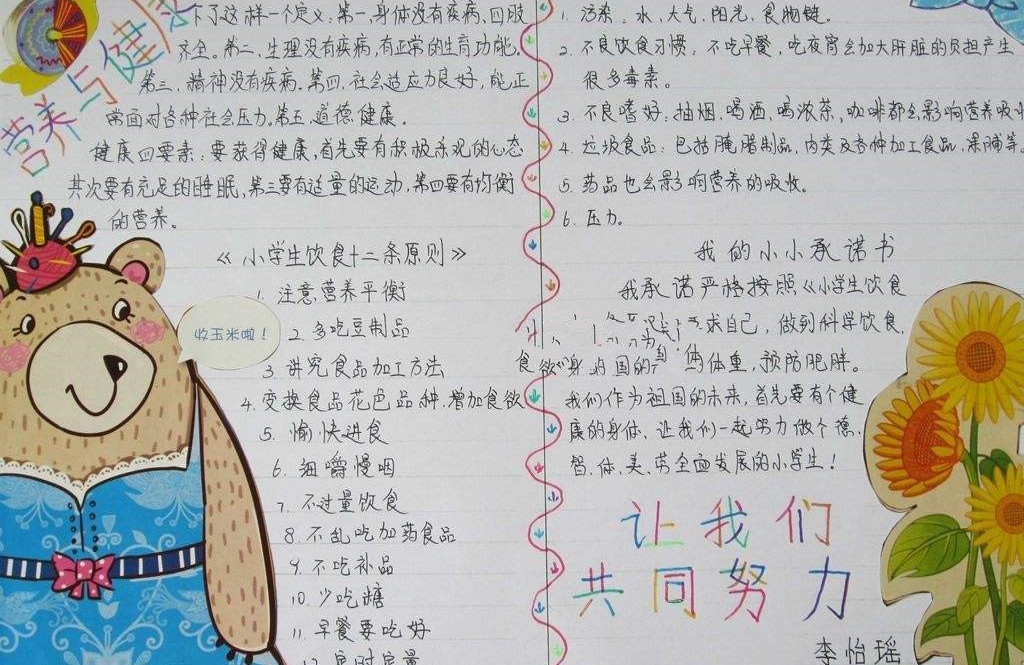 营养与健康
下了这样一个定义：第一，身体没有疾病，四肢
齐全。第二、生理没有疾病，有正常的生育功能，
第三，精神没有疾病。第四，社会适应力良好，能正
常面对各种社会压力。第五，道德健康。
健康四要素：要获得健康，首先要有积极乐观的心态
其次要有充足的睡眠，第三要有适量的运动，第四要有均衡
的营养。
《小学生饮食十二条原则》
1. 注意营养平衡
2. 多吃豆制品
3. 讲究食品加工方法
4. 变换食品花色品种，增加食欲
5. 愉快进食
6. 细嚼慢咽
7. 不过量饮食
8. 不乱吃加药食品
9. 不吃补品
10. 少吃糖
11. 早餐要吃好
12. 定时定量
收玉米啦！
1. 污染：水，大气，阳光，食物链。
2. 不良饮食习惯：不吃早餐，吃夜宵会加大肝脏的负担产生
很多毒素。
3. 不良嗜好：抽烟，喝酒，喝浓茶，咖啡都会影响营养吸收
4. 垃圾食品：包括腌腊制品，肉类及各种加工食品，果脯等。
5. 药品也会影响营养的吸收。
6. 压力。
我的小小承诺书
我承诺严格按照《小学生饮食
求自己，做到科学饮食，
体重，预防肥胖。
我们作为祖国的未来，首先要有个健
康的身体，让我们一起努力做个德、
智、体、美、劳全面发展的小学生！
让我们
共同努力
李怡瑶